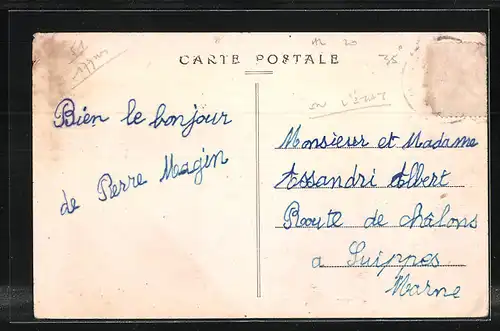 CARTE POSTALE
Bien le bonjour
de Pierre Magin
Monsieur et Madame
Assandri Albert
Route de châlons
a Suippes
Marne